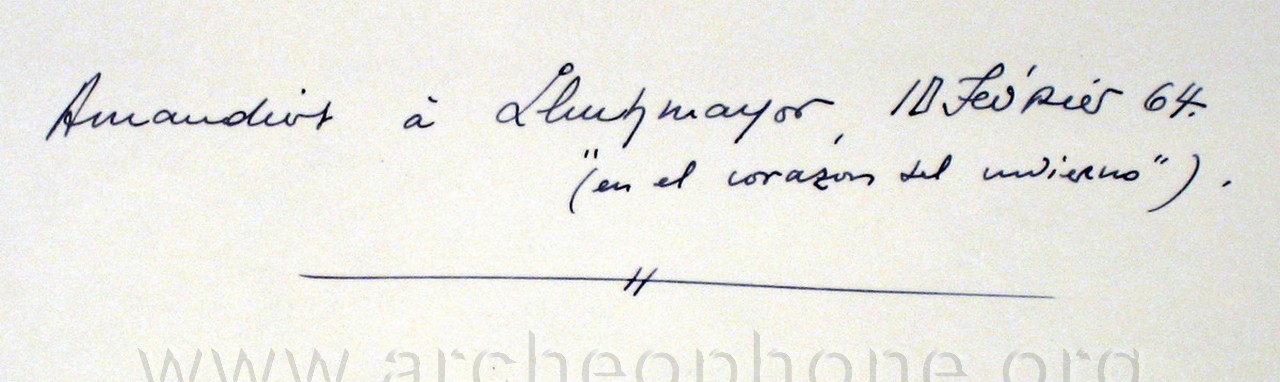 Amandiers à Lluchmayor, 10 Février 64.
("en el corazón del invierno").
www.archeophone.org